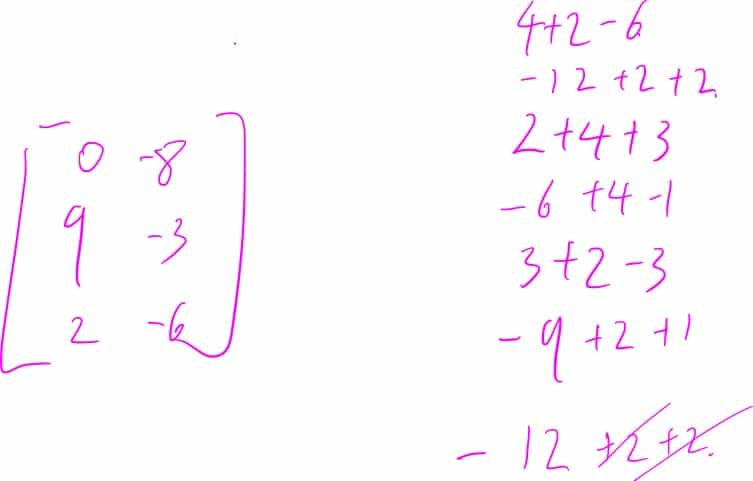 0 -8
9 -3
2 -6
4+2-6
-12+2+2
2+4+3
-6+4-1
3+2-3
-9+2+1
-12+2+2